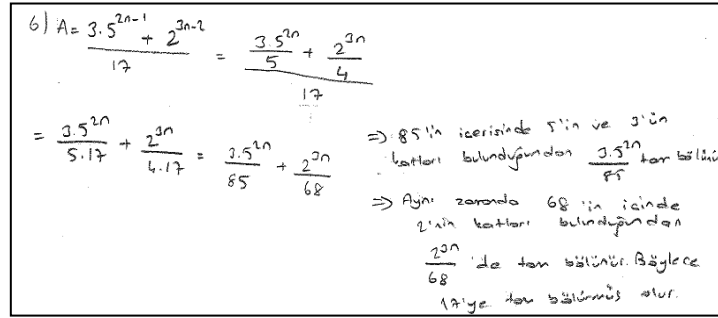 6) A = 3.5^{2n-1} + 2^{3n-2} / 17 = (3.5^{2n}/5 + 2^{3n}/4) / 17
= 3.5^{2n}/5.17 + 2^{3n}/4.17 = 3.5^{2n}/85 + 2^{3n}/68
=> 85'in içerisinde 5'in ve 3'ün
katları bulunduğundan 3.5^{2n}/85 tam bölünür
=> Aynı zamanda 68'in içinde
2'nin katları bulunduğundan
2^{3n}/68 'de tam bölünür. Böylece
17'ye tam bölünmüş olur.